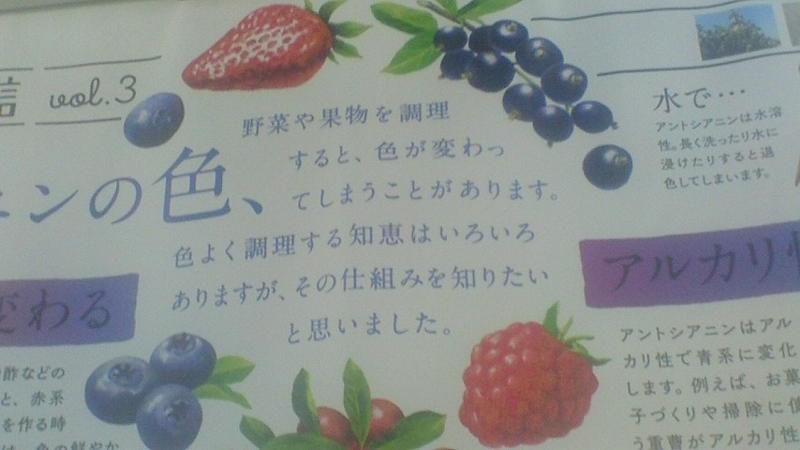 信 vol.3
ニンの色、
野菜や果物を調理
すると、色が変わっ
てしまうことがあります。
色よく調理する知恵はいろいろ
ありますが、その仕組みを知りたい
と思いました。
水で…
アントシアニンは水溶
性。長く洗ったり水に
浸けたりすると退
色してしまいます。
変わる
酢などの
と、赤系
を作る時
色の鮮やか
アルカリ性
アントシアニンはアル
カリ性で青系に変化
します。例えば、お菓
子づくりや掃除に使
う重曹がアルカリ性